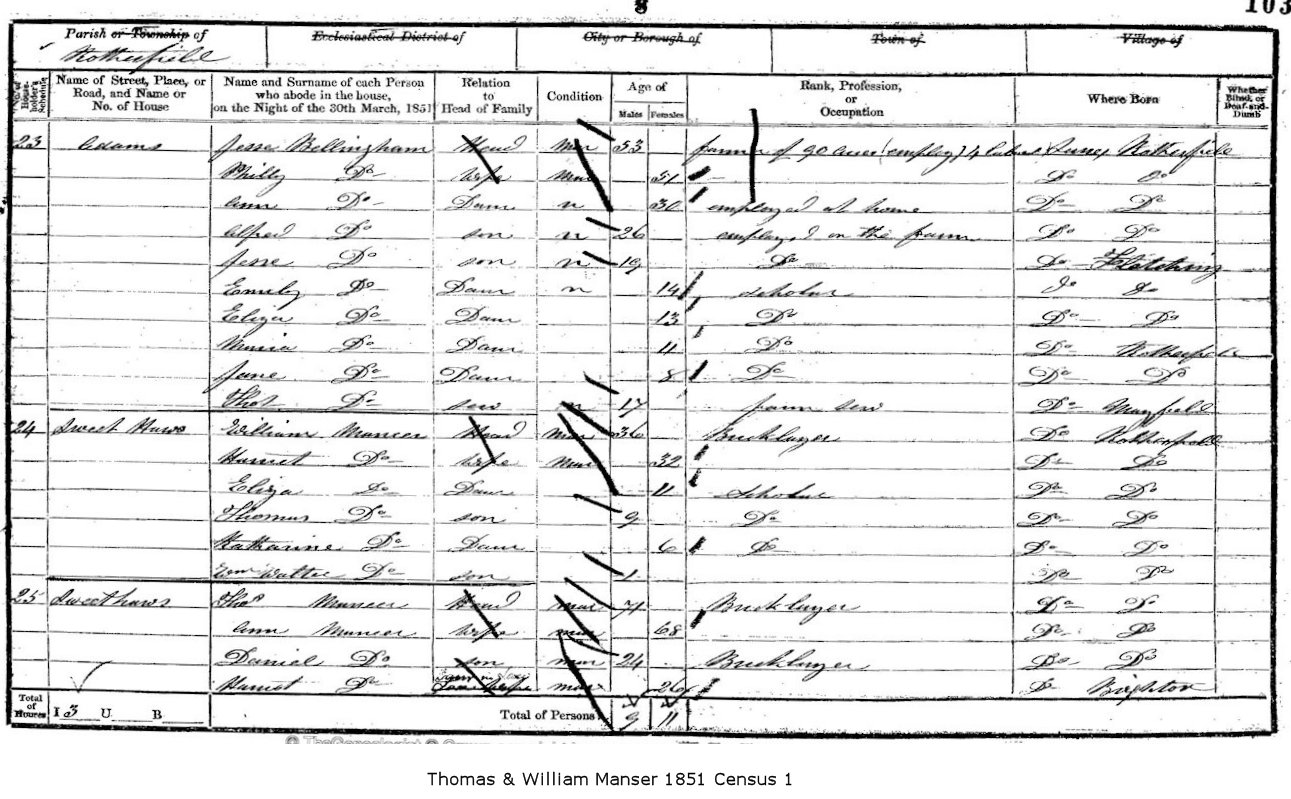 8
103
Parish or Township of
Ecclesiastical District of
City or Borough of
Town of
Village of
Rotherfield
No. of House-holder's Schedule
Name of Street, Place, or Road, and Name or No. of House
Name and Surname of each Person who abode in the house, on the Night of the 30th March, 1851
Relation to Head of Family
Condition
Age of
Males Females
Rank, Profession, or Occupation
Where Born
Whether Blind, or Deaf-and-Dumb
23 Adams Jesse Bellingham Head Mar 53 farmer of 90 acres (employ) 4 labr Sussex Rotherfield
Philly Do wife Mar 51 Do Do
Ann Do Daur u 30 employed at home Do Do
Alfred Do son u 26 employed on the farm Do Do
Jesse Do son u 19 Do Do Fletching
Emily Do Daur u 14 scholar Do Do
Eliza Do Daur 13 Do Do Do
Maria Do Daur 11 Do Do Rotherfield
Jane Do Daur 8 Do Do Do
Thos Do serv u 17 farm serv Do Mayfield
24 Sweet Haws William Manser Head Mar 36 Bricklayer Do Rotherfield
Harriet Do wife Mar 32 Do Do
Eliza Do Daur 11 scholar Do Do
Thomas Do son 9 Do Do Do
Katharine Do Daur 6 Do Do Do
Wm Walter Do son 1 Do Do
25 Sweethaws Thos Manser Head mar 71 Bricklayer Do Do
Ann Manser wife mar 68 Do Do
Daniel Do son mar 24 Bricklayer Do Do
Harriot Do mar 26 Do Brighton
Total of Houses I 3 U B Total of Persons 9 11
Thomas & William Manser 1851 Census 1